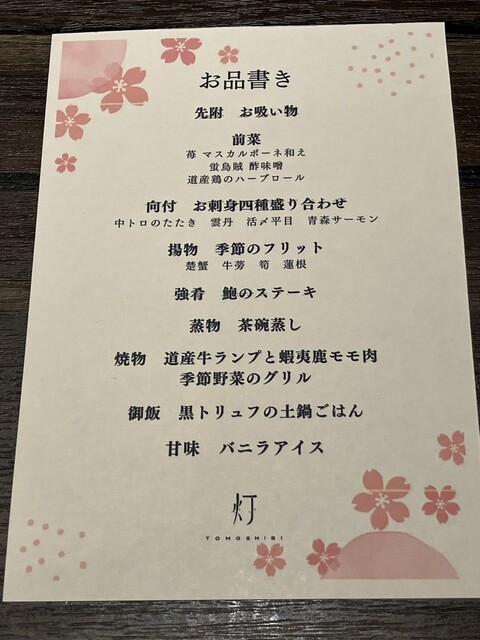 お品書き
先附　お吸い物
前菜
苺 マスカルポーネ和え
蛍烏賊 酢味噌
道産鶏のハーブロール
向付　お刺身四種盛り合わせ
中トロのたたき　雲丹　活〆平目　青森サーモン
揚物　季節のフリット
楚蟹　牛蒡　筍　蓮根
強肴　鮑のステーキ
蒸物　茶碗蒸し
焼物　道産牛ランプと蝦夷鹿モモ肉
季節野菜のグリル
御飯　黒トリュフの土鍋ごはん
甘味　バニラアイス
灯
TOMOSHIBI